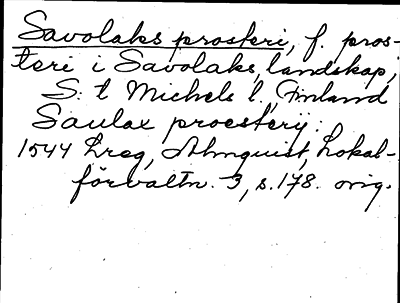 Savolaks prosteri, f. pros-
teri i Savolaks, landskap,
S:t Michels l. Finland
Saulax proesterij:
1544 Lreg, Almquist, Lokal-
förvaltn. 3, s. 178. orig.